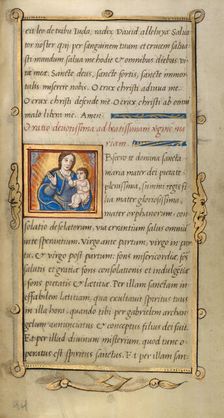 ex leo de tribu Iuda, radix Dauid alleluya. Salua
tor noster qui per sanguinem tuum et crucem salua
sti mundum salua me hodie et omnibus diebus vi
tæ meæ. Sancte deus, sancte fortis, sancte immor
talis miserere nobis. O crux christi adiuua me.
O crux christi defende me O crux christi ab omni
malo libera me. Amen.
Oratio deuotissima ad beatissimam virginem ma
riam.
Bsecro te domina sancta
maria mater dei pietate
plenissima, summi regis fi
lia mater gloriosissima,
mater orphanorum, con
solatio desolatorum, via errantium salus omnium
in te sperantium. Virgo ante partum, virgo in par
tu, & virgo post partum. fons misericordiæ, fons
salutis et gratiæ fons consolationis et indulgentiæ
fons pietatis & lætitiæ. Per illam sanctam in
effabilem lætitiam, qua exultauit spiritus tuus
in illa hora, quando tibi per gabrielem archan
gelum annunciatus & conceptus filius dei fuit.
Et per illud diuinum misterium, quod tunc o
peratus est spiritus sanctus. Et per illam sanc